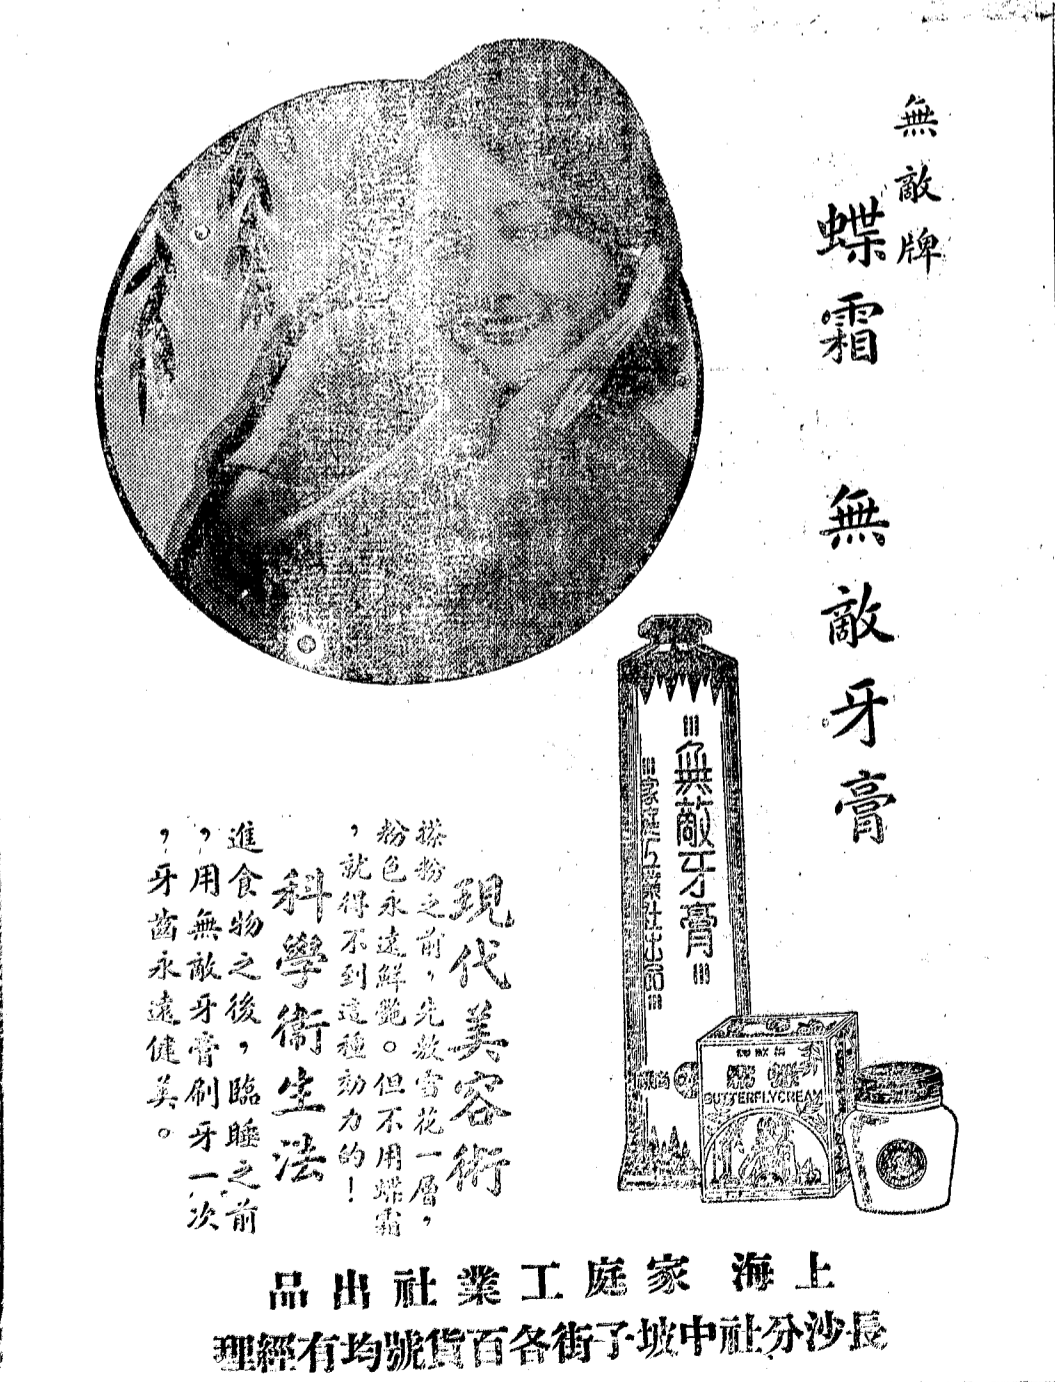 無敵牌
蝶霜
無敵牙膏
無敵牙膏
家庭工業社出品
BUTTERFLYCREAM
現代美容術
搽粉之前，先敷雪花一層，
粉色永遠鮮艷。但不用蝶霜
，就得不到這種効力的！
科學衞生法
進食物之後，臨睡之前
，用無敵牙膏刷牙一次
，牙齒永遠健美。
上海家庭工業社出品
長沙分社中坡子街各百貨號均有經理